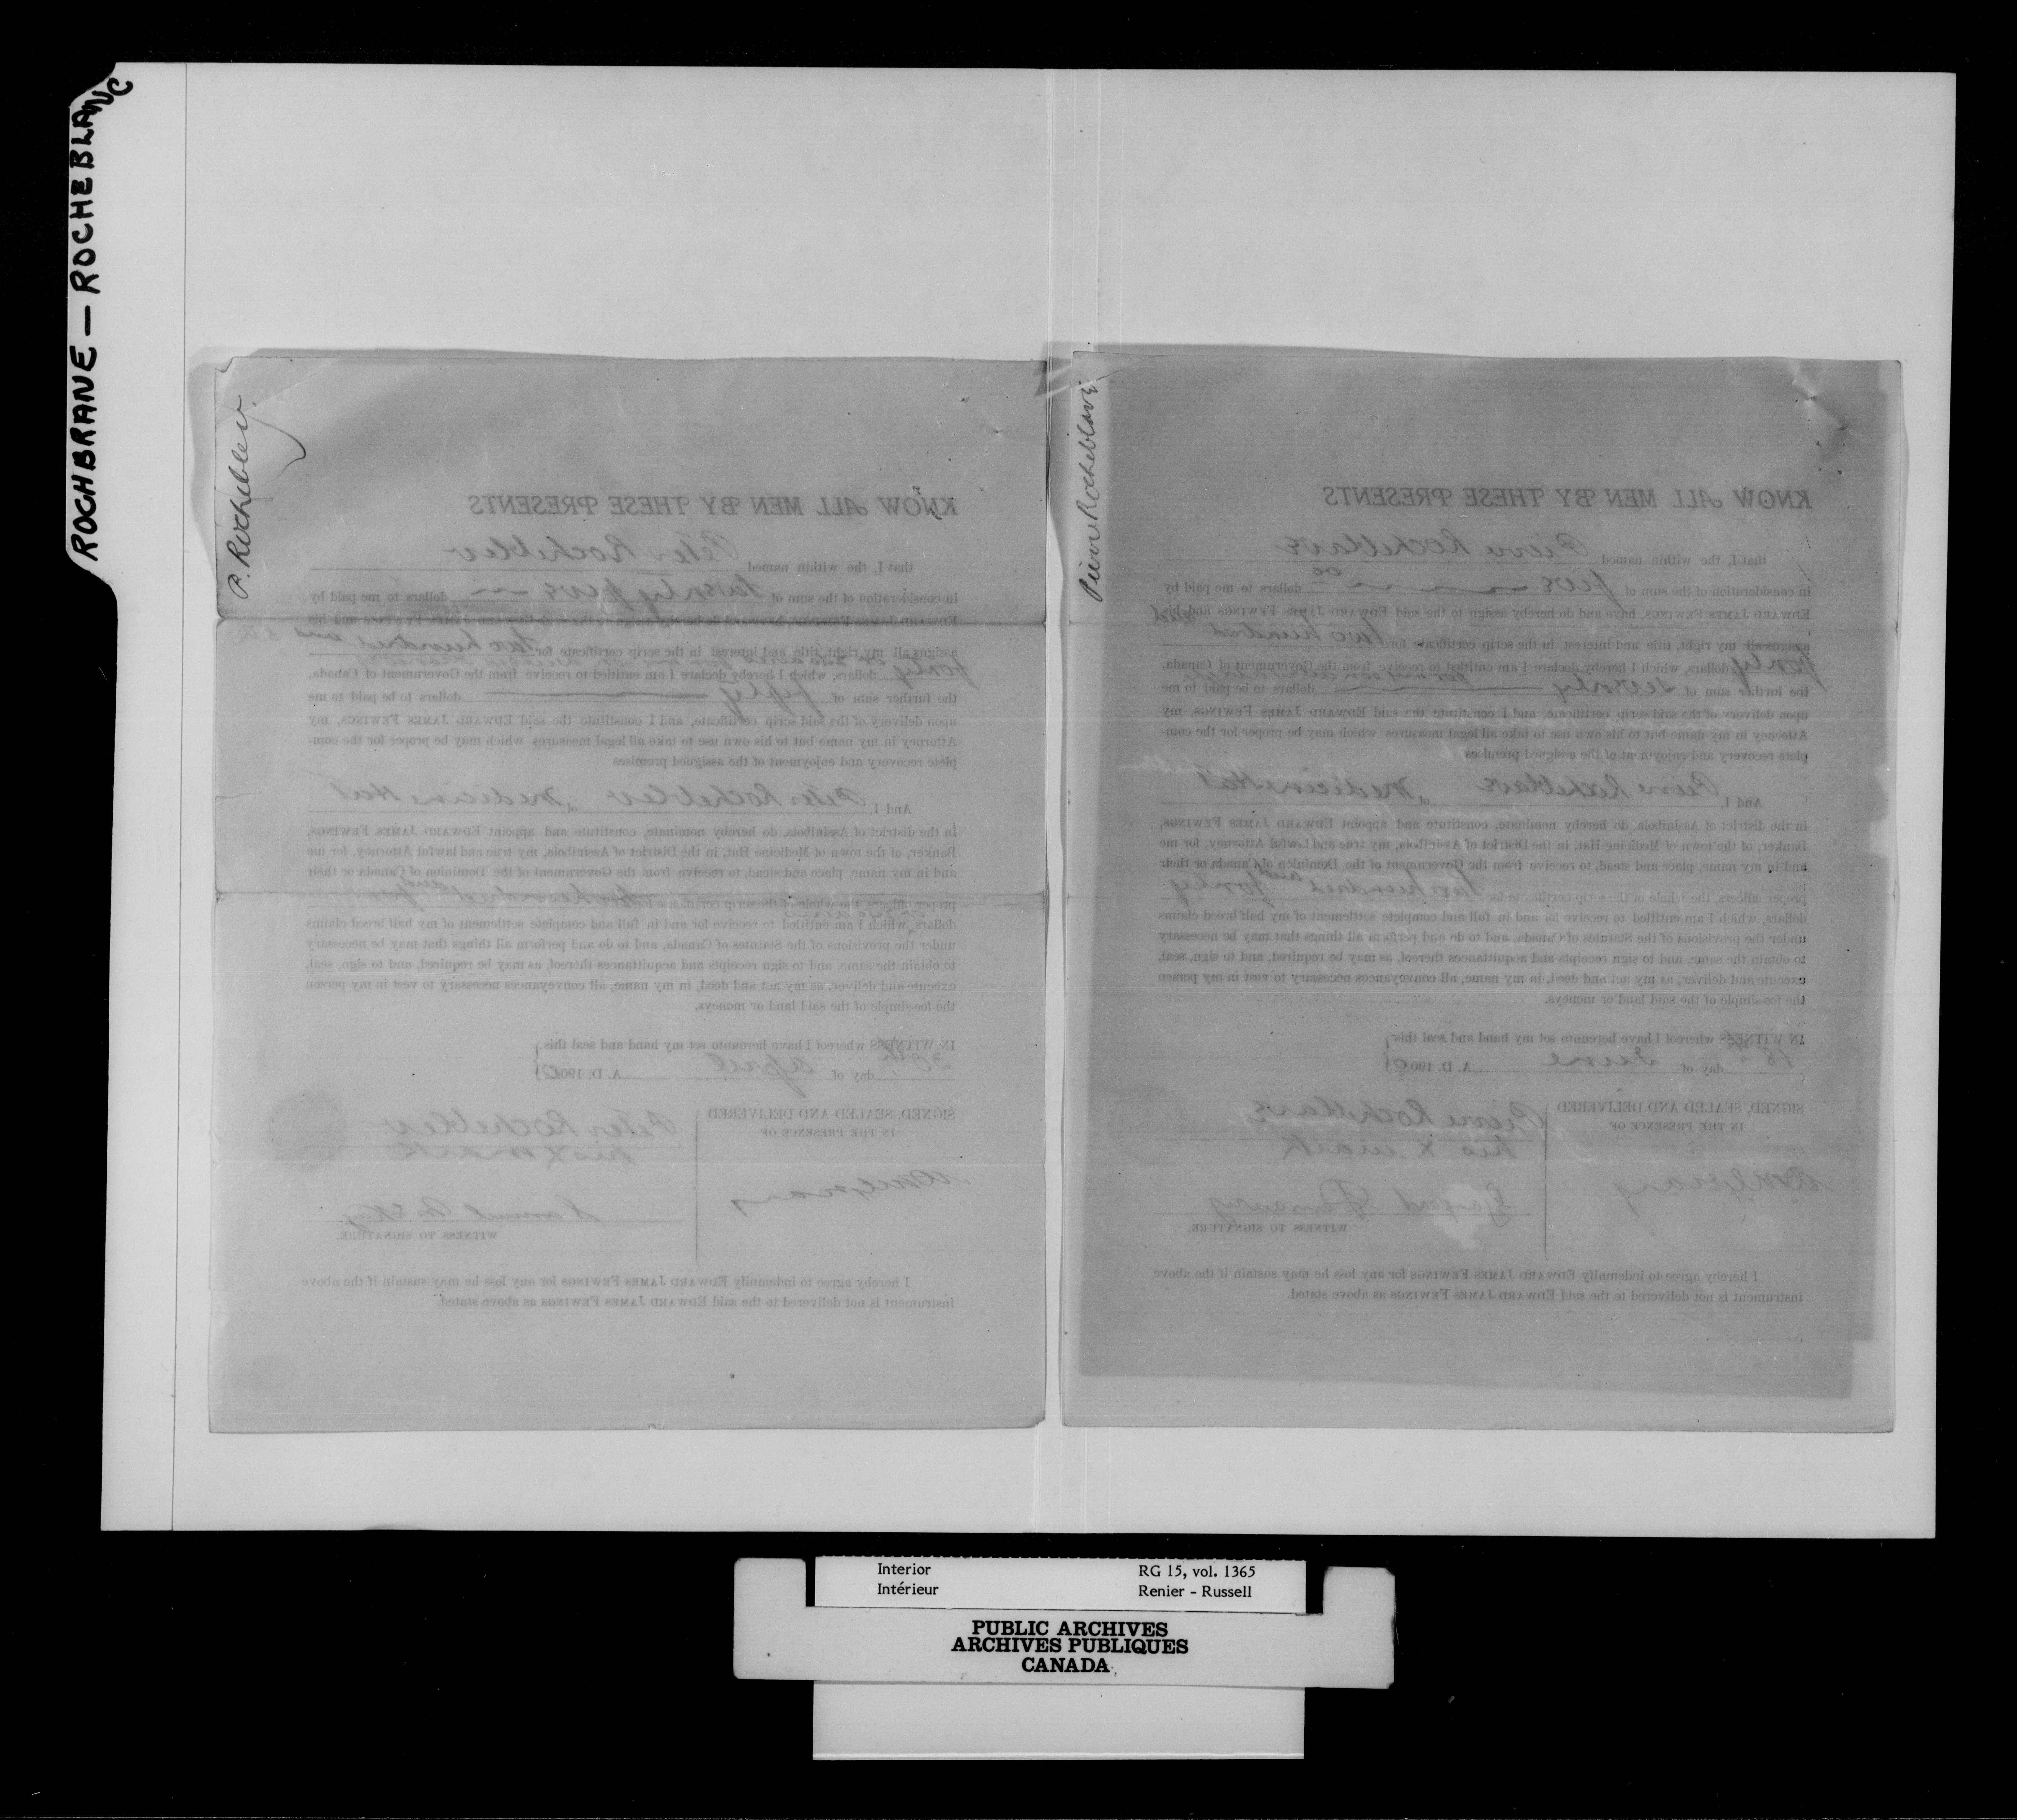 ROCHBRANE - ROCHEBLANC
P. Rocheblew.
KNOW ALL MEN BY THESE PRESENTS
that I, the within named Peter Rocheblew
in consideration of the sum of twenty five dollars to me paid by
EDWARD JAMES FEWINGS, have and do hereby assign to the said EDWARD JAMES FEWINGS and his
assigns all my right, title and interest in the scrip certificate for two hundred and
forty or 240 acres dollars, which I hereby declare I am entitled to receive from the Government of Canada,
the further sum of fifty dollars to be paid to me
upon delivery of the said scrip certificate, and I constitute the said EDWARD JAMES FEWINGS, my
Attorney in my name but to his own use to take all legal measures which may be proper for the com-
plete recovery and enjoyment of the assigned premises
And I, Peter Rocheblew of Medicine Hat
in the district of Assiniboia, do hereby nominate, constitute and appoint EDWARD JAMES FEWINGS,
Banker, of the town of Medicine Hat, in the District of Assiniboia, my true and lawful Attorney, for me
and in my name, place and stead, to receive from the Government of the Dominion of Canada or their
proper officers, the whole of the scrip certificate for two hundred and
dollars, which I am entitled to receive for and in full and complete settlement of my half breed claims
under the provisions of the Statutes of Canada, and to do and perform all things that may be necessary
to obtain the same, and to sign receipts and acquittances thereof, as may be required, and to sign, seal,
execute and deliver, as my act and deed, in my name, all conveyances necessary to vest in my person
the fee-simple of the said land or moneys.
IN WITNESS whereof I have hereunto set my hand and seal this
30th day of April A. D. 1900
SIGNED, SEALED AND DELIVERED
IN THE PRESENCE OF
Peter Rocheblew
his X mark
Samuel McKay
WITNESS TO SIGNATURE.
I hereby agree to indemnify EDWARD JAMES FEWINGS for any loss he may sustain if the above
instrument is not delivered to the said EDWARD JAMES FEWINGS as above stated.
Pierre Rocheblave
KNOW ALL MEN BY THESE PRESENTS
that I, the within named Pierre Rocheblave
in consideration of the sum of five 00 dollars to me paid by
EDWARD JAMES FEWINGS, have and do hereby assign to the said EDWARD JAMES FEWINGS and his
assigns all my right, title and interest in the scrip certificate for two hundred and
forty dollars, which I hereby declare I am entitled to receive from the Government of Canada,
the further sum of seventy dollars to be paid to me
upon delivery of the said scrip certificate, and I constitute the said EDWARD JAMES FEWINGS, my
Attorney in my name but to his own use to take all legal measures which may be proper for the com-
plete recovery and enjoyment of the assigned premises
And I, Pierre Rocheblave of Medicine Hat
in the district of Assiniboia, do hereby nominate, constitute and appoint EDWARD JAMES FEWINGS,
Banker, of the town of Medicine Hat, in the District of Assiniboia, my true and lawful Attorney, for me
and in my name, place and stead, to receive from the Government of the Dominion of Canada or their
proper officers, the whole of the scrip certificate for two hundred and forty
dollars, which I am entitled to receive for and in full and complete settlement of my half breed claims
under the provisions of the Statutes of Canada, and to do and perform all things that may be necessary
to obtain the same, and to sign receipts and acquittances thereof, as may be required, and to sign, seal,
execute and deliver, as my act and deed, in my name, all conveyances necessary to vest in my person
the fee-simple of the said land or moneys.
IN WITNESS whereof I have hereunto set my hand and seal this
18th day of June A. D. 1900
SIGNED, SEALED AND DELIVERED
IN THE PRESENCE OF
Pierre Rocheblave
his X mark
WITNESS TO SIGNATURE.
I hereby agree to indemnify EDWARD JAMES FEWINGS for any loss he may sustain if the above
instrument is not delivered to the said EDWARD JAMES FEWINGS as above stated.
Interior RG 15, vol. 1365
Intérieur Renier - Russell
PUBLIC ARCHIVES
ARCHIVES PUBLIQUES
CANADA